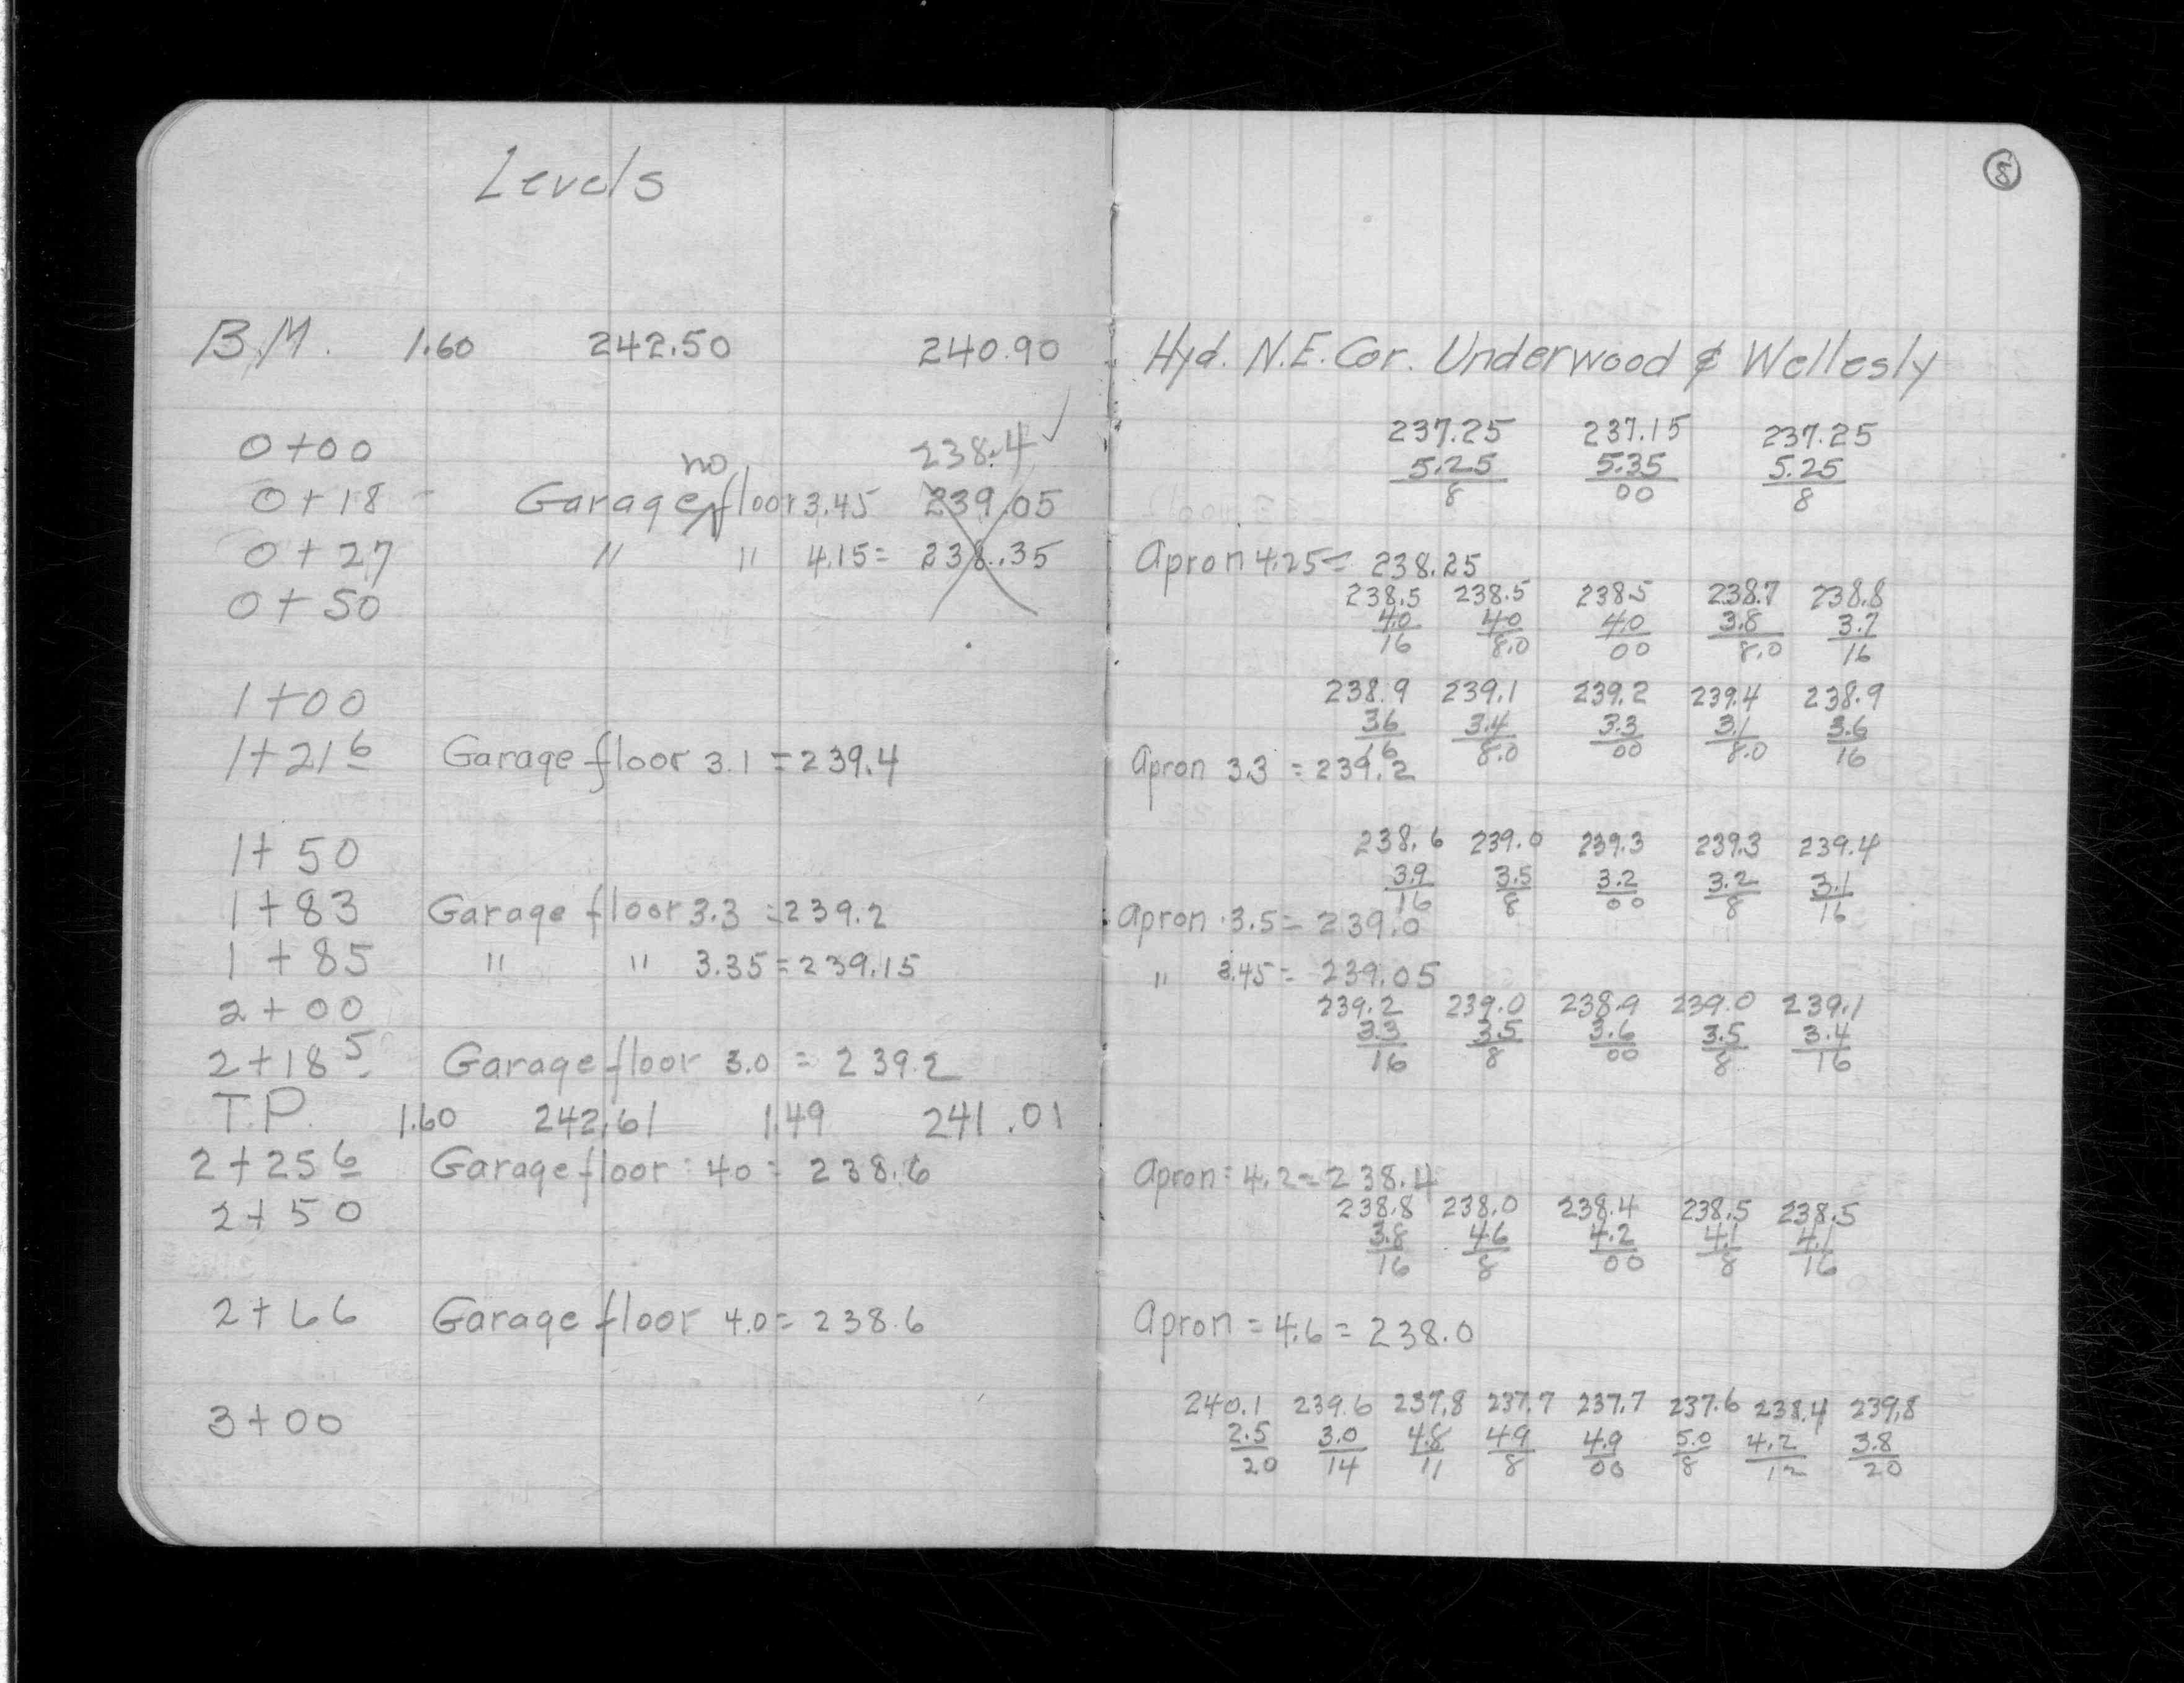 Levels
B.M. 1.60 242.50 240.90
0+00 238.4 ✓
no
0+18 Garage floor 3.45 239.05
0+27 " " 4.15= 238.35
0+50
1+00
1+21 6 Garage floor 3.1 = 239.4
1+50
1+83 Garage floor 3.3 = 239.2
1+85 " " 3.35 = 239.15
2+00
2+18 5 Garage floor 3.0 = 239.2
T.P. 1.60 242.61 1.49 241.01
2+25 6 Garage floor = 40 = 238.6
2+50
2+66 Garage floor 4.0= 238.6
3+00
8
Hyd. N.E. Cor. Underwood & Wellesly
237.25 237.15 237.25
5.25 5.35 5.25
8 00 8
Apron 4.25= 238.25
238.5 238.5 238.5 238.7 238.8
4.0 4.0 4.0 3.8 3.7
16 8.0 00 8.0 16
238.9 239.1 239.2 239.4 238.9
3.6 3.4 3.3 3.1 3.6
16 8.0 00 8.0 16
Apron 3.3 = 239.2
238.6 239.0 239.3 239.3 239.4
3.9 3.5 3.2 3.2 3.1
16 8 00 8 16
Apron 3.5= 239.0
" 3.45= 239.05
239.2 239.0 238.9 239.0 239.1
3.3 3.5 3.6 3.5 3.4
16 8 00 8 16
Apron = 4.2= 238.4
238.8 238.0 238.4 238.5 238.5
3.8 4.6 4.2 4.1 4.1
16 8 00 8 16
Apron = 4.6 = 238.0
240.1 239.6 237.8 237.7 237.7 237.6 238.4 239.8
2.5 3.0 4.8 4.9 4.9 5.0 4.2 3.8
20 14 11 8 00 8 12 20